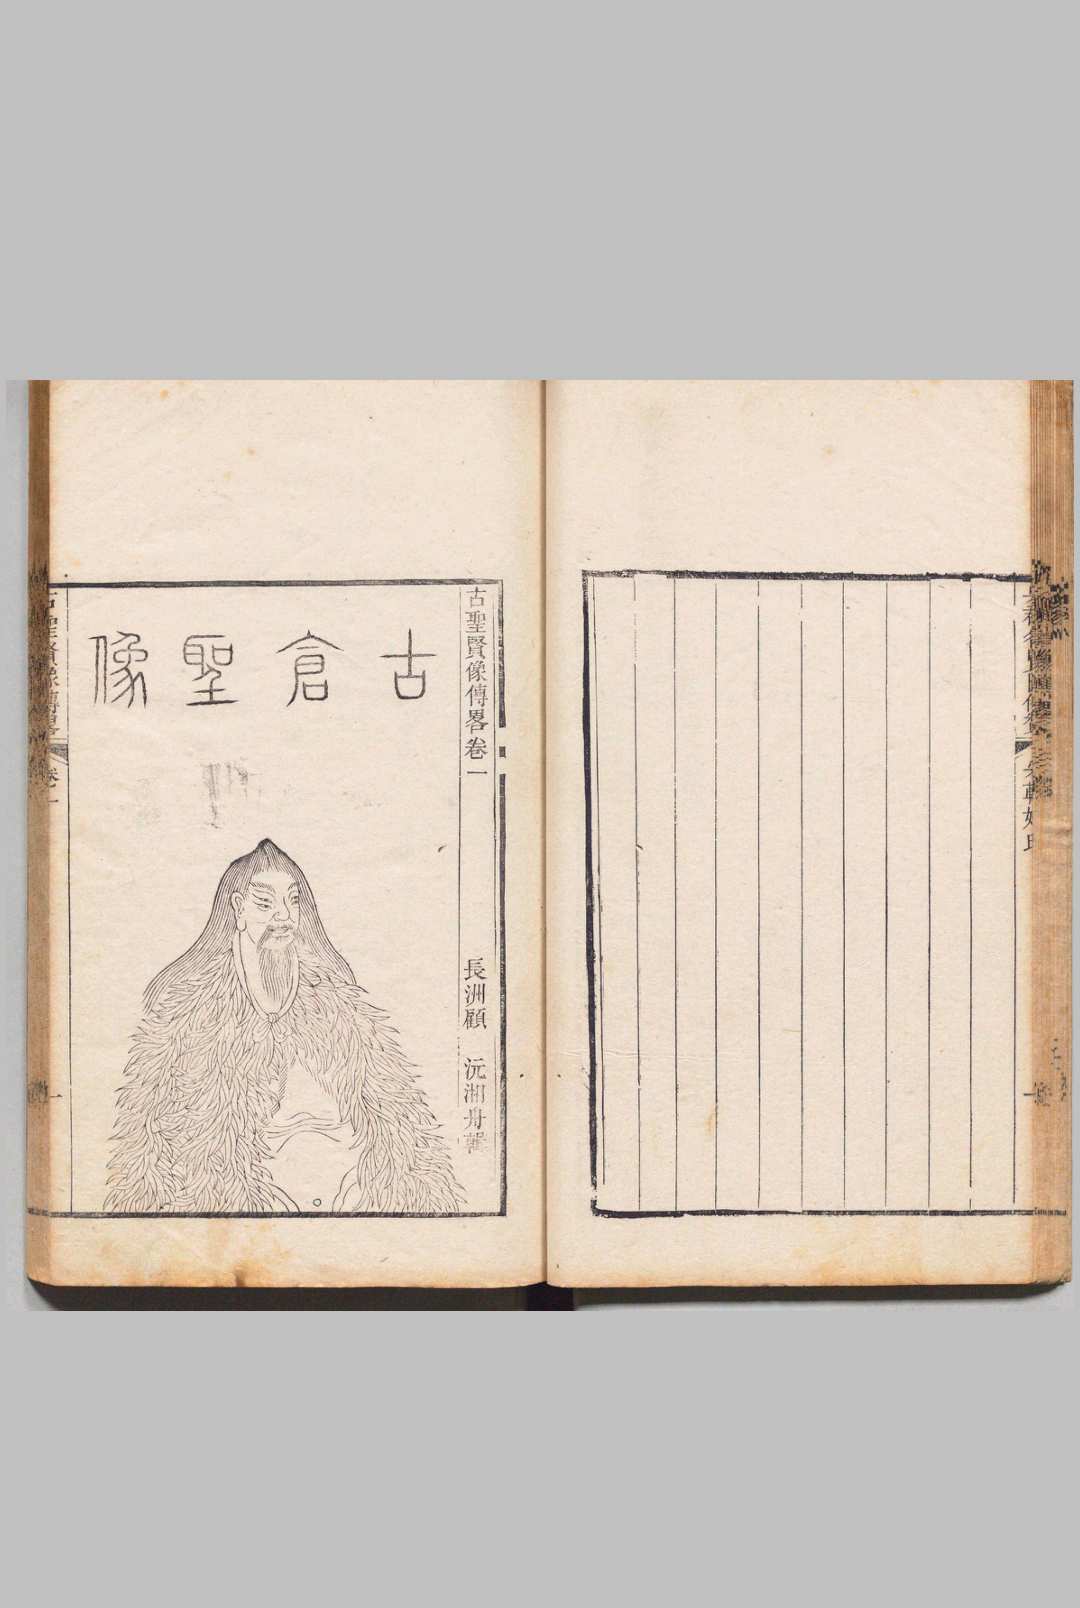 古聖賢像傳畧卷一
長洲顧　沅湘舟輯
古倉聖像
古聖賢像傳畧
卷一
一